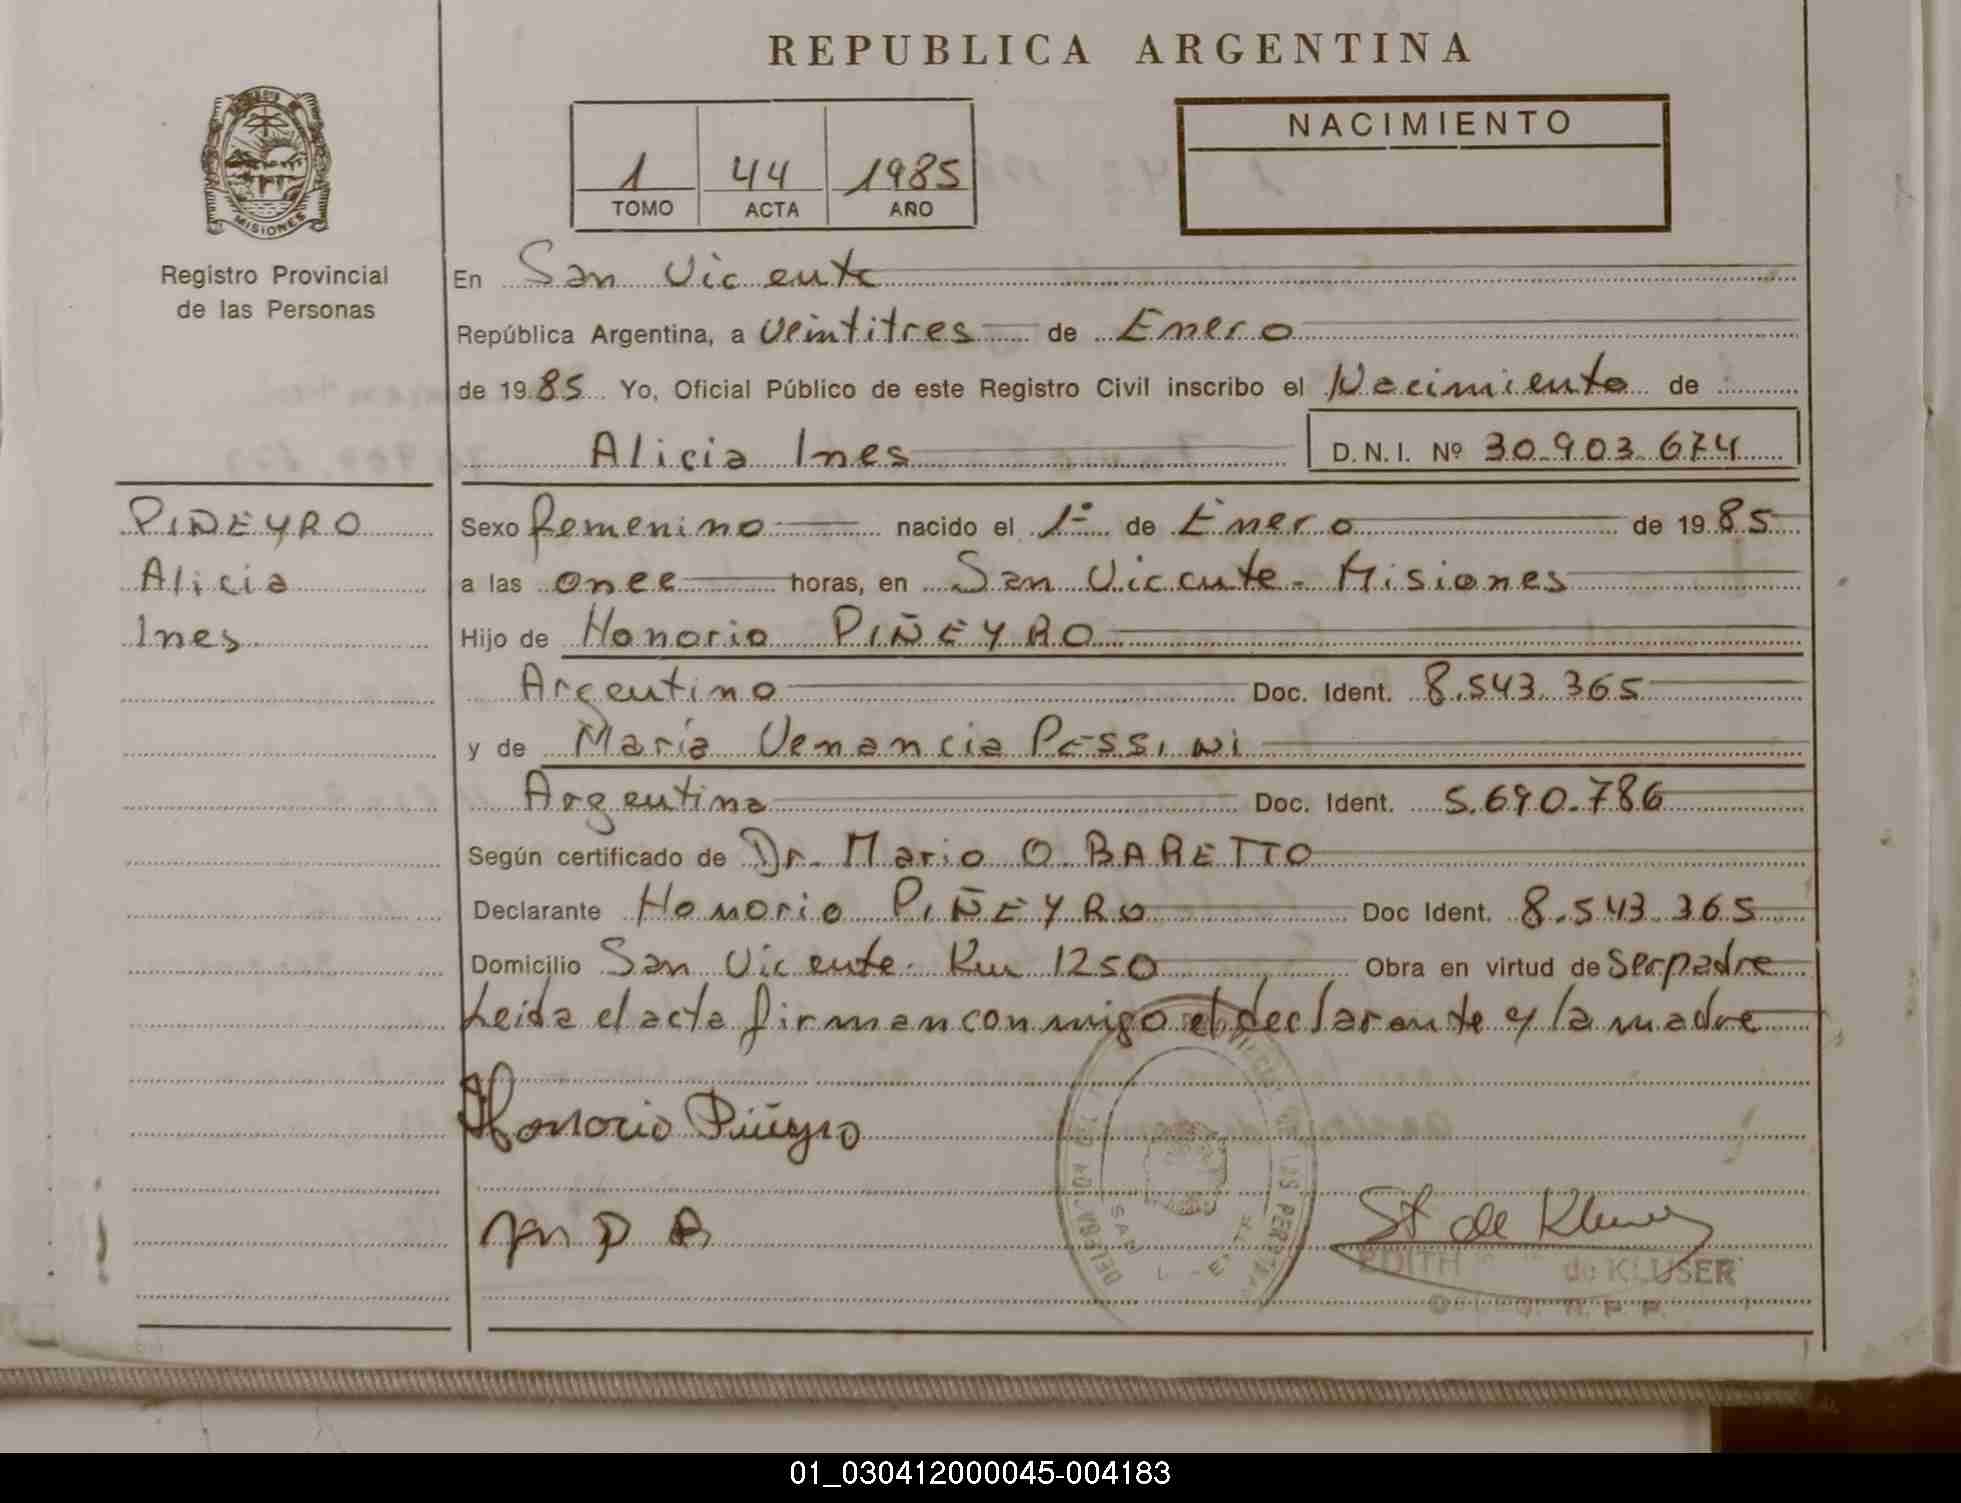 REPUBLICA ARGENTINA
MISIONES
Registro Provincial
de las Personas
1 44 1985
TOMO ACTA AÑO
NACIMIENTO
En San Vicente
República Argentina, a veintitres de Enero
de 1985 Yo, Oficial Público de este Registro Civil inscribo el Nacimiento de
Alicia Ines D.N.I. Nº 30.903.674
PIÑEYRO
Alicia
Ines
Sexo femenino nacido el 1º de Enero de 1985
a las once horas, en San Vicente - Misiones
Hijo de Honorio PIÑEYRO
Argentino Doc. Ident. 8.543.365
y de María Venancia PESSINI
Argentina Doc. Ident. 5.690.786
Según certificado de Dr. Mario O. BARETTO
Declarante Honorio PIÑEYRO Doc Ident. 8.543.365
Domicilio San Vicente. Km 1250 Obra en virtud de Ser padre
Leida el acta firman conmigo el declarante y la madre
Honorio Piñeyro
EDITH de KLUSER
01_030412000045-004183